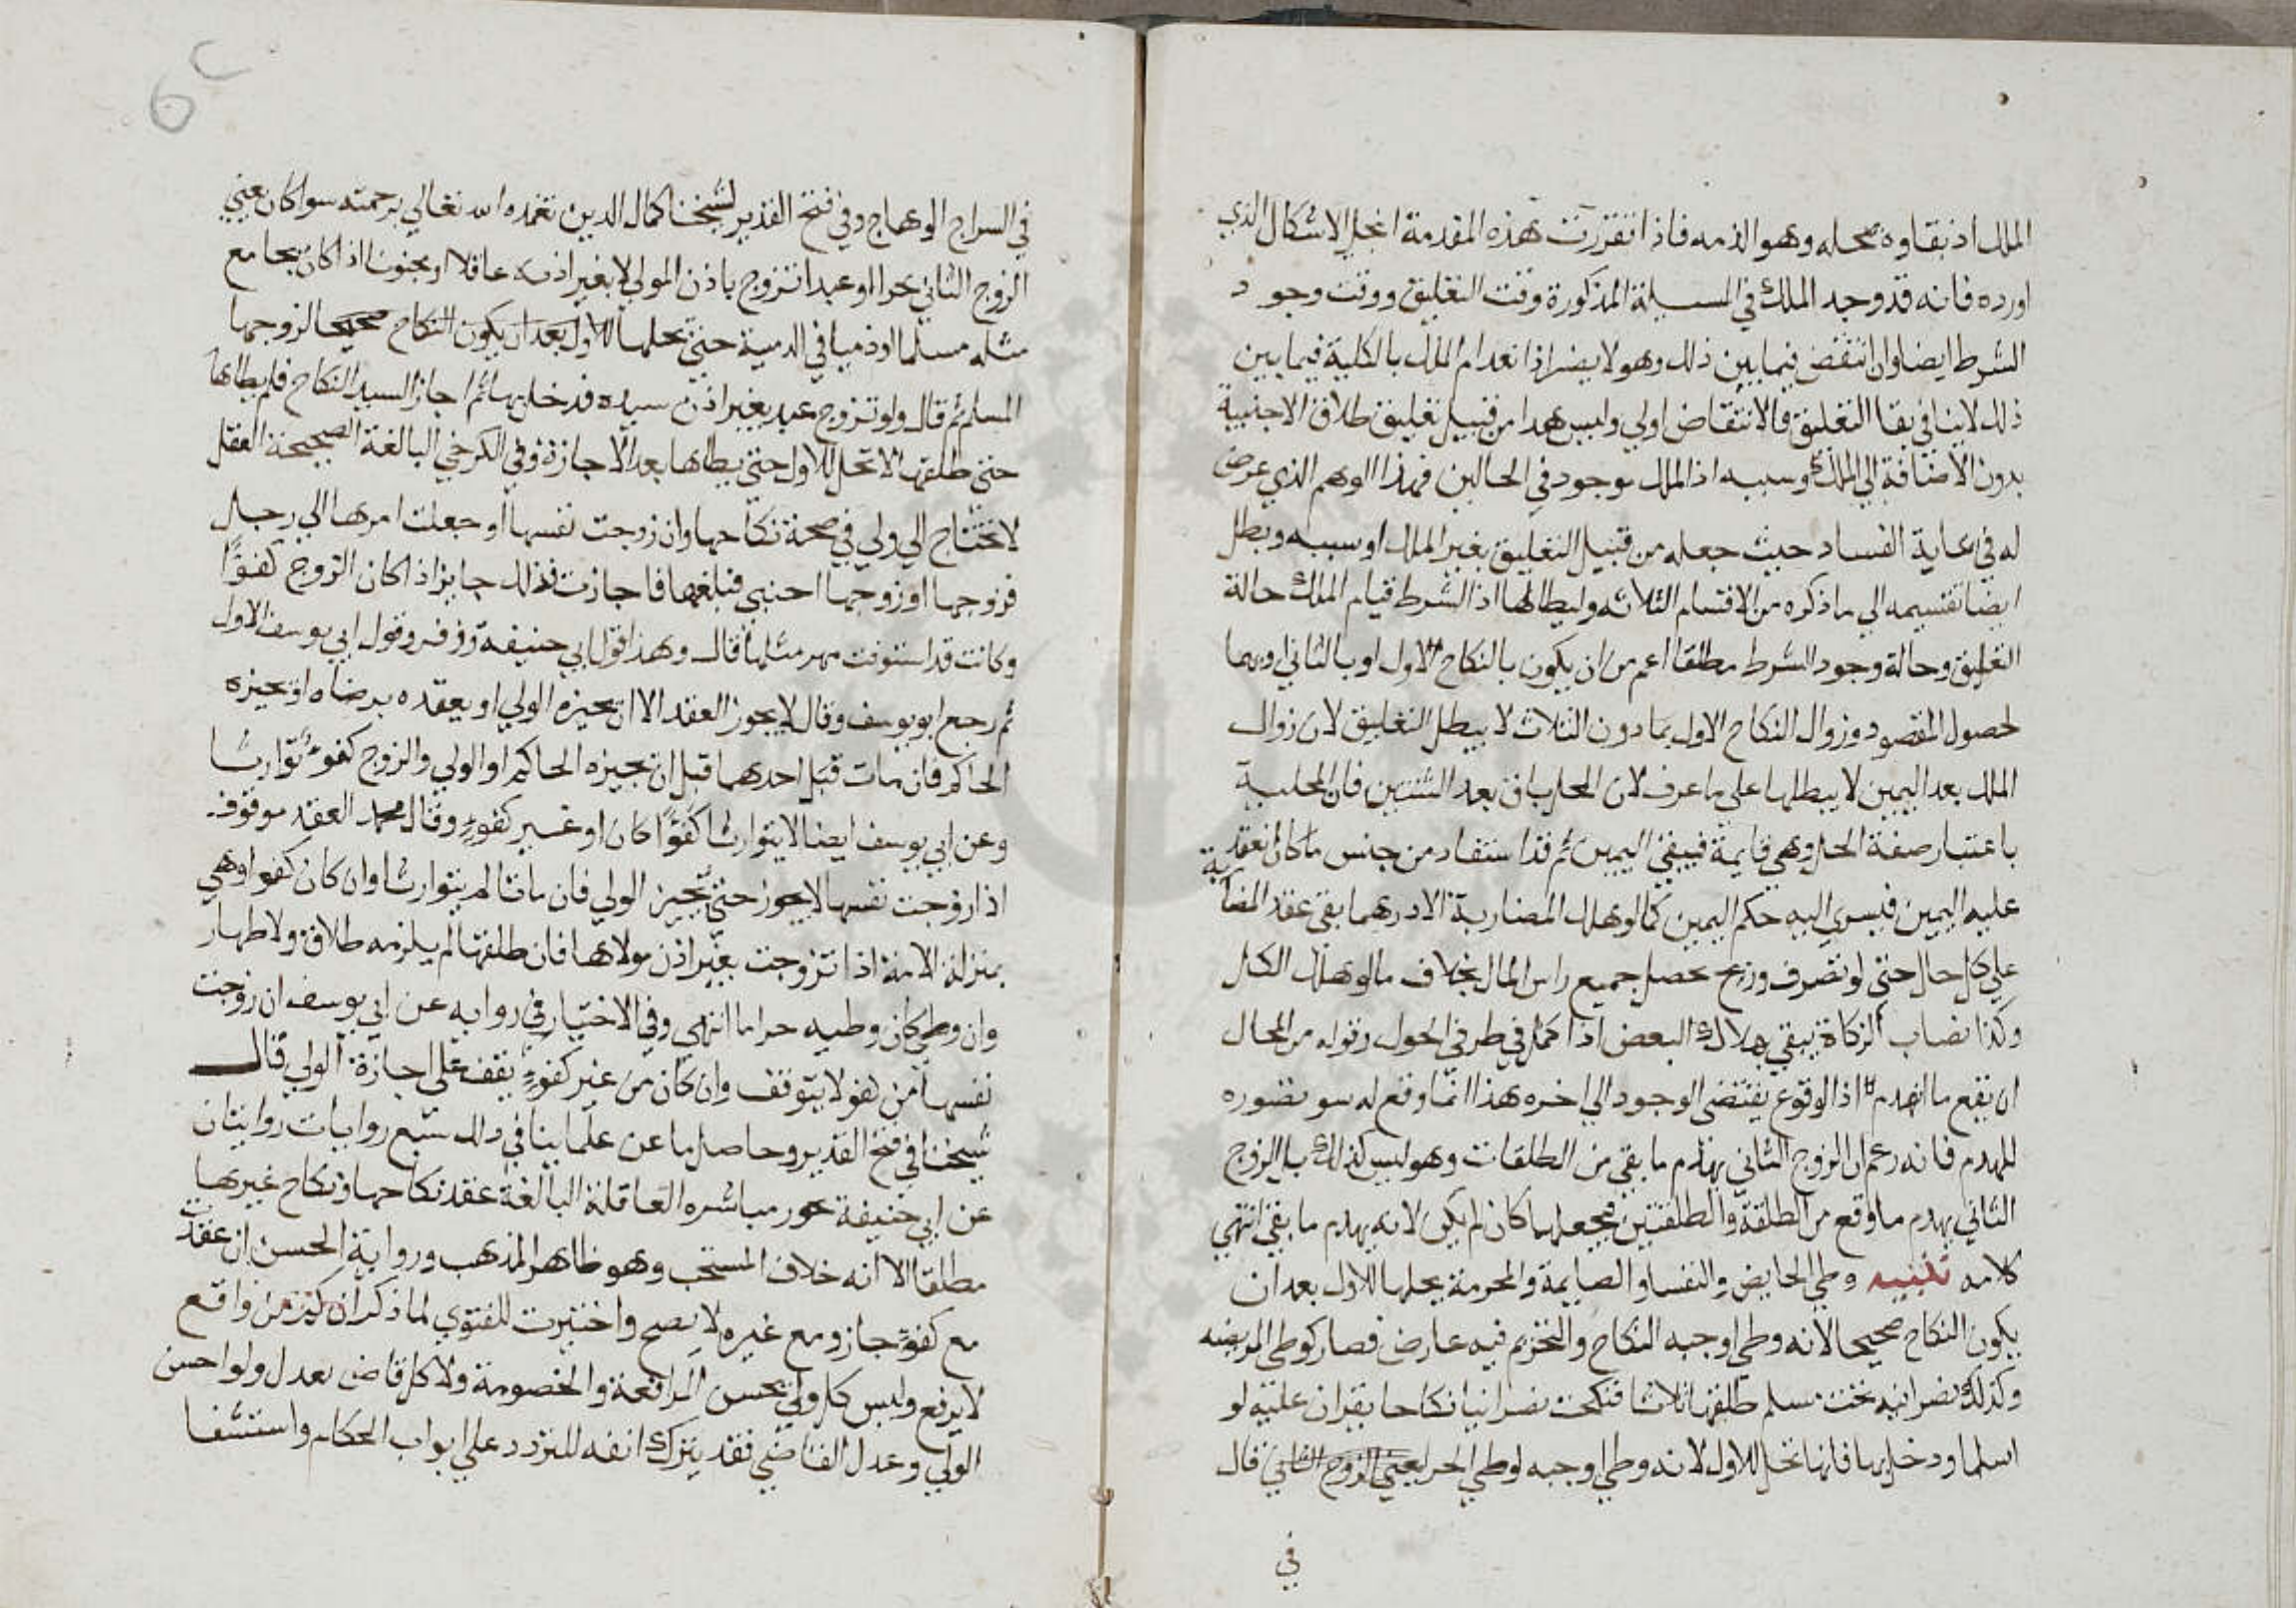 الملك اذ بقاوه بمحله وهو الذمه فاذا تقررت هذه المقدمة انحل الاشكال الذي
اورده فانه قد وجد الملك في المسيلة المذكورة وقت التعليق ووقت وجود
الشرط ايضا وان انتقض فيما بين ذلك وهو لا يضر اذ انعدام الملك بالكلية فيما بين
ذلك لا ينافي بقا التعليق فالانتقاض اولي وليس هذا من قبيل تعليق طلاق الاجنبية
بدون الاضافة الي الملك وسببه اذ الملك موجود في الحالين فهذا الوهم الذي عرض
له في غاية الفساد حيث جعله من قبيل التعليق بغير الملك او سببه وبطل
ايضا تقسيمه الي ما ذكره من الاقسام الثلاثه وابطالها اذ الشرط قيام الملك حالة
التعليق وحالة وجود الشرط مطلقا اعم من ان يكون بالنكاح الاول او بالثاني او بهما
لحصول المقصود وزوال النكاح الاول بما دون الثلاث لا يبطل التعليق لان زوال
الملك بعد اليمين لا يبطلها علي ما عرف لان المحل باق بعد الثنتين فان المحلية
باعتبار صفة الحل وهي قايمة فيبقي اليمين ثم قد استفاد من جنس ما كان انعقد
عليه اليمين فيسري اليه حكم اليمين كما لو هلك المضاربة الا درهما بقي عقد المضاربة
علي كل حال حتي لو تصرف وربح تحصل جميع راس المال بخلاف ما لو هلك الكل
وكذا نصاب الزكاة يبقي بهلاك البعض اذا كمل في طرفي الحول وقوله من المحال
ان يقع ما انهدم اذ الوقوع يقتضي الوجود الي اخره هذا انما وقع له سو تصوره
للهدم فانه زعم ان الزوج الثاني يهدم ما بقي من الطلقات وهو ليس كذلك بل الزوج
الثاني يهدم ما وقع من الطلقة والطلقتين فيجعلها كان لم يكن لا انه يهدم ما بقي انتهي
كلامه تنبيه وطي الحايض والنفسا والصايمة والمحرمة يحلها للاول بعد ان
يكون النكاح صحيحا لانه وطي اوجبه النكاح والتحريم فيه عارض فصار كوطي المريضه
وكذلك نصرانيه تحت مسلم طلقها ثلاثا فنكحت نصرانيا نكاحا يقران عليه لو
اسلما ودخل بها فانها تحل للاول لانه وطي اوجبه لوطي الحر يعني الزوج الثاني قال
في
في السراج الوهاج وفي فتح القدير لشيخنا كمال الدين تغمده الله تعالي برحمته سوا كان يعني
الزوج الثاني حرا او عبدا تزوج باذن المولي لا بغير اذنه عاقلا او مجنونا اذا كان يجامع
مثله مسلما او ذميا في الذمية حتي يحلها للاول بعد ان يكون النكاح صحيحا لزوجها
المسلم ثم قال ولو تزوج عبد بغير اذن سيده فدخل بها ثم اجاز السيد النكاح فلم يطاها
حتي طلقها لا تحل للاول حتي يطاها بعد الاجازة وفي الكرخي البالغة الصحيحة العقل
لا تحتاج الي ولي في صحة نكاحها وان زوجت نفسها او جعلت امرها الي رجل
فزوجها او زوجها اجنبي فبلغها فاجازت فذلك جايز اذا كان الزوج كفؤا
وكانت قد استوفت مهر مثلها قال وهذا قول ابي حنيفة وزفر وقول ابي يوسف الاول
ثم رجع ابو يوسف وقال لا يجوز العقد الا ان يجيزه الولي او يعقده برضاه او يجيزه
الحاكم فان مات قبل احدهما قبل ان يجيزه الحاكم او الولي والزوج كفوء توارثا
وعن ابي يوسف ايضا لا يتوارثا كفوًا كان او غير كفوءٍ وقال محمد العقد موقوف
اذا زوجت نفسها لا يجوز حتي يجيز الولي فان ماتا لم يتوارثا وان كان كفوا وهي
بمنزلة الامة اذا تزوجت بغير اذن مولاها فان طلقها لم يلزمه طلاق ولا ظهار
وان وطي كان وطيه حراما انتهي وفي الاختيار في روايه عن ابي يوسف ان زوجت
نفسها من كفو لا يتوقف وان كان من غير كفوءٍ يقف علي اجازة الولي قال
شيخنا في فتح القدير وحاصل ما عن علماينا في ذلك سبع روايات روايتان
عن ابي حنيفة تجوز مباشره العاقلة البالغة عقد نكاحها ونكاح غيرها
مطلقا الا انه خلاف المستحب وهو ظاهر المذهب ورواية الحسن ان عقدت
مع كفوٍ جاز ومع غيره لا يصح واختيرت للفتوي لما ذكر ان كم من واقع
لا يرفع وليس كل ولي يحسن المرافعة والخصومة ولا كل قاض يعدل ولو احسن
الولي وعدل القاضي فقد يترك انفه للتردد علي ابواب الحكام واستثقا